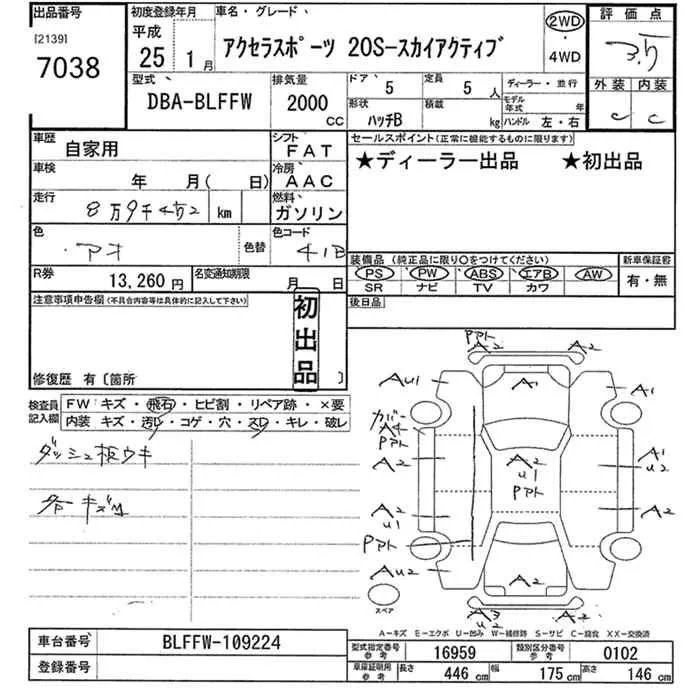 出品番号
[2139]
7038
初度登録年月
平成
25 1月
車名・グレード
アクセラスポーツ 20S-スカイアクティブ
2WD
・
4WD
評価点
3.5
外装 内装
C C
型式
DBA-BLFFW
排気量
2000
CC
ドア
5
定員
5
人
形状
ハッチB
積載
kg
ディーラー・並行
モデル
年式
年
ハンドル 左・右
車歴
自家用
シフト
FAT
車検
年 月( 日)
冷房
AAC
走行
8万9千452
km
燃料
ガソリン
色
アオ
色替
色コード
41B
R券
13,260円
名変通知期限
月 日
セールスポイント(正常に機能するものに限ります)
★ディーラー出品 ★初出品
装備品(純正品に限り○をつけてください)
PS PW ABS エアB AW
SR ナビ TV カワ
新車保証書
有・無
後日品
注意事項申告欄(不具合内容等は具体的に記入して下さい)
初出品
修復歴 有〔箇所 〕
検査員
記入欄
FW キズ・飛石・ヒビ割・リペア跡・×要
内装 キズ・汚レ・コゲ・穴・スレ・キレ・破レ
ダッシュ板ウキ
キズ
PPト
A2
A2
AU1
A1
A1
A4
PPト
A2
A2
U1
PPト
A1
U2
A2
U1
A2
PPト
AU2
A2
A3
U2
A2
スペア
A-キズ E-エクボ U-凹み W-補修跡 S-サビ C-腐食 XX-交換済
車台番号
BLFFW-109224
登録番号
型式指定番号
参考
16959
類別区分番号
参考
0102
車庫証明用
参考
長さ
446 cm
幅
175 cm
高さ
146 cm